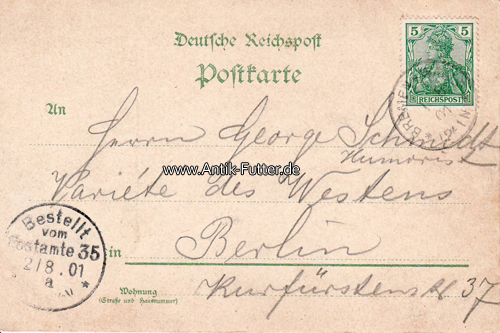 Deutsche Reichspost
Postkarte
5 5
REICHSPOST
An
Herrn George Schmidt
Humorist
www.Antik-Futter.de
Variété des Westens
Bestellt
vom
Postamte 35
2/8.01
a
in Berlin
Wohnung
(Straße und Hausnummer)
Kurfürstenst 37